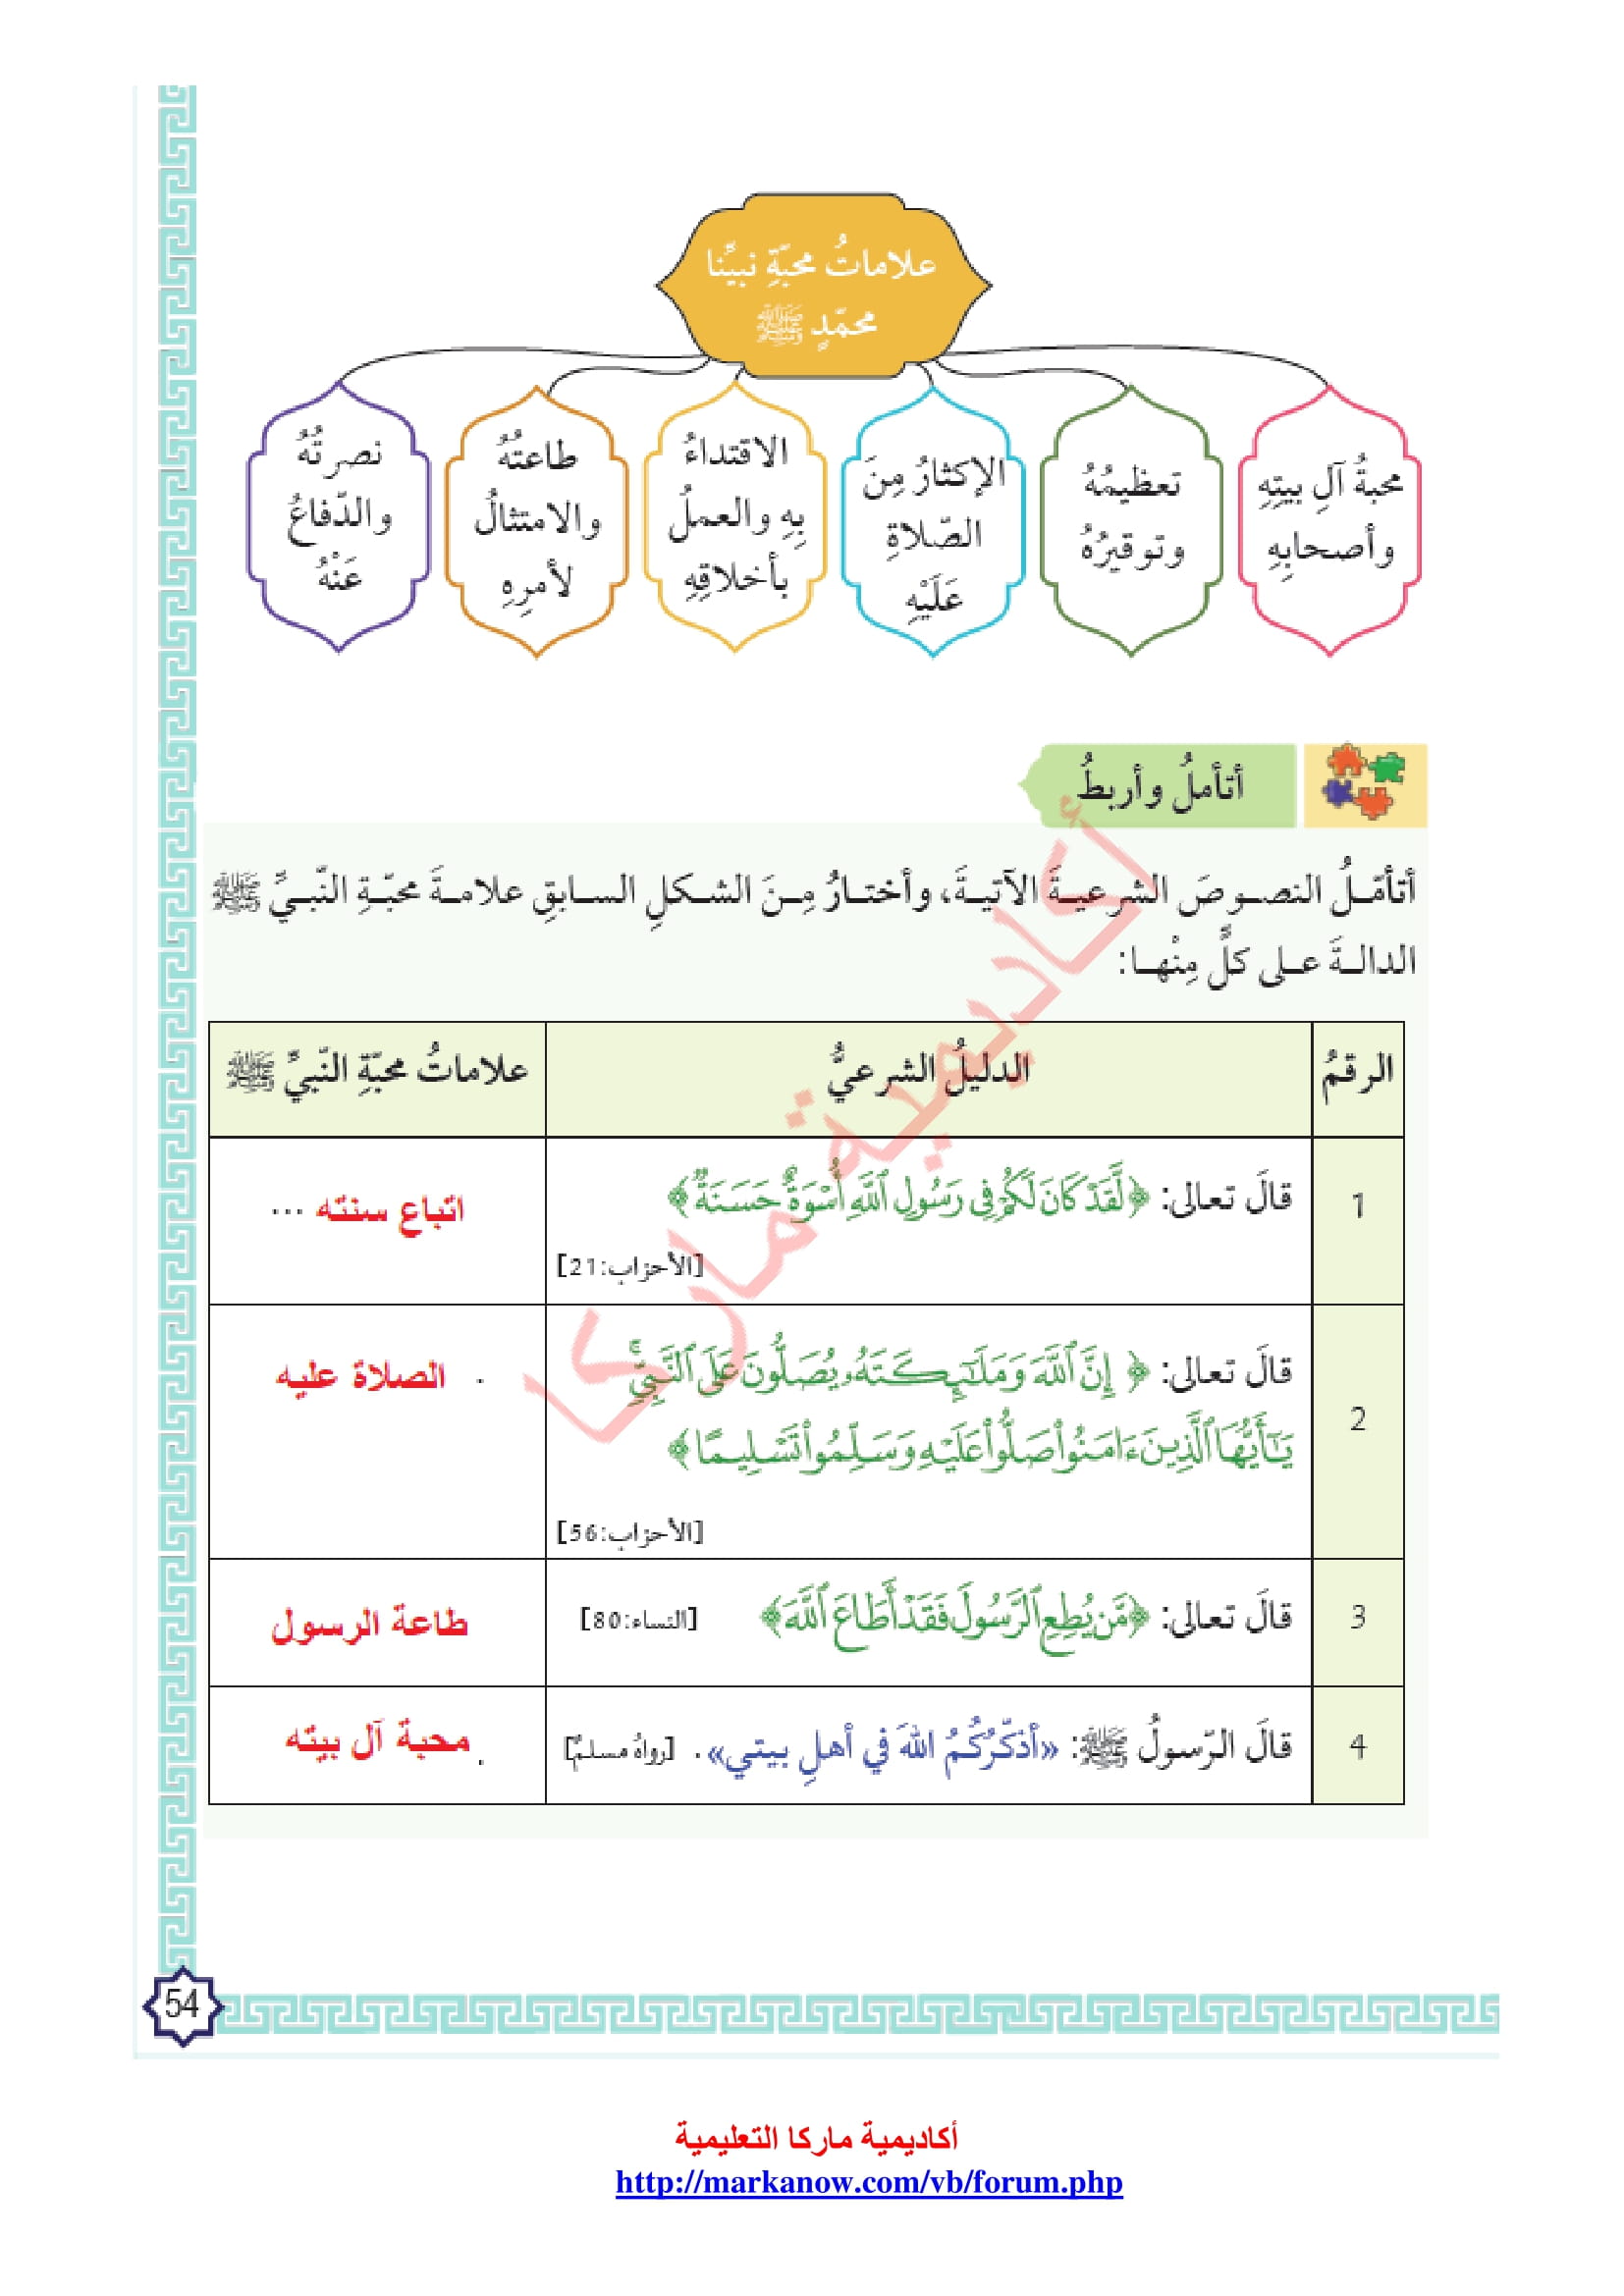 علاماتُ محبّةِ نبيِّنا
محمّدٍ ﷺ
محبةُ آلِ بيتِهِ
وأصحابِهِ
تعظيمُهُ
وتوقيرُهُ
الإكثارُ مِنَ
الصّلاةِ
عَلَيْهِ
الاقتداءُ
بِهِ والعملُ
بأخلاقِهِ
طاعتُهُ
والامتثالُ
لأمرِهِ
نصرتُهُ
والدّفاعُ
عَنْهُ
أتأملُ وأربطُ
أتأمّلُ النصوصَ الشرعيةَ الآتيةَ، وأختارُ مِنَ الشكلِ السابقِ علامةَ محبّةِ النّبيِّ ﷺ
الدالةَ على كلٍّ مِنْها:
الرقمُ الدليلُ الشرعيُّ علاماتُ محبّةِ النّبيِّ ﷺ
1 قالَ تعالى: ﴿لَّقَدْ كَانَ لَكُمْ فِي رَسُولِ ٱللَّهِ أُسْوَةٌ حَسَنَةٌ﴾ اتباع سنته ...
[الأحزاب:21]
2 قالَ تعالى: ﴿إِنَّ ٱللَّهَ وَمَلَـٰٓئِكَتَهُۥ يُصَلُّونَ عَلَى ٱلنَّبِيِّۚ . الصلاة عليه
يَـٰٓأَيُّهَا ٱلَّذِينَ ءَامَنُوا۟ صَلُّوا۟ عَلَيْهِ وَسَلِّمُوا۟ تَسْلِيمًا﴾
[الأحزاب:56]
3 قالَ تعالى: ﴿مَّن يُطِعِ ٱلرَّسُولَ فَقَدْ أَطَاعَ ٱللَّهَ﴾ [النساء:80] طاعة الرسول
4 قالَ الرّسولُ ﷺ: «أذكّرُكُمُ اللهَ في أهلِ بيتي». [رواهُ مسلمٌ] محبة آل بيته .
أكاديمية ماركا
54
أكاديمية ماركا التعليمية
http://markanow.com/vb/forum.php